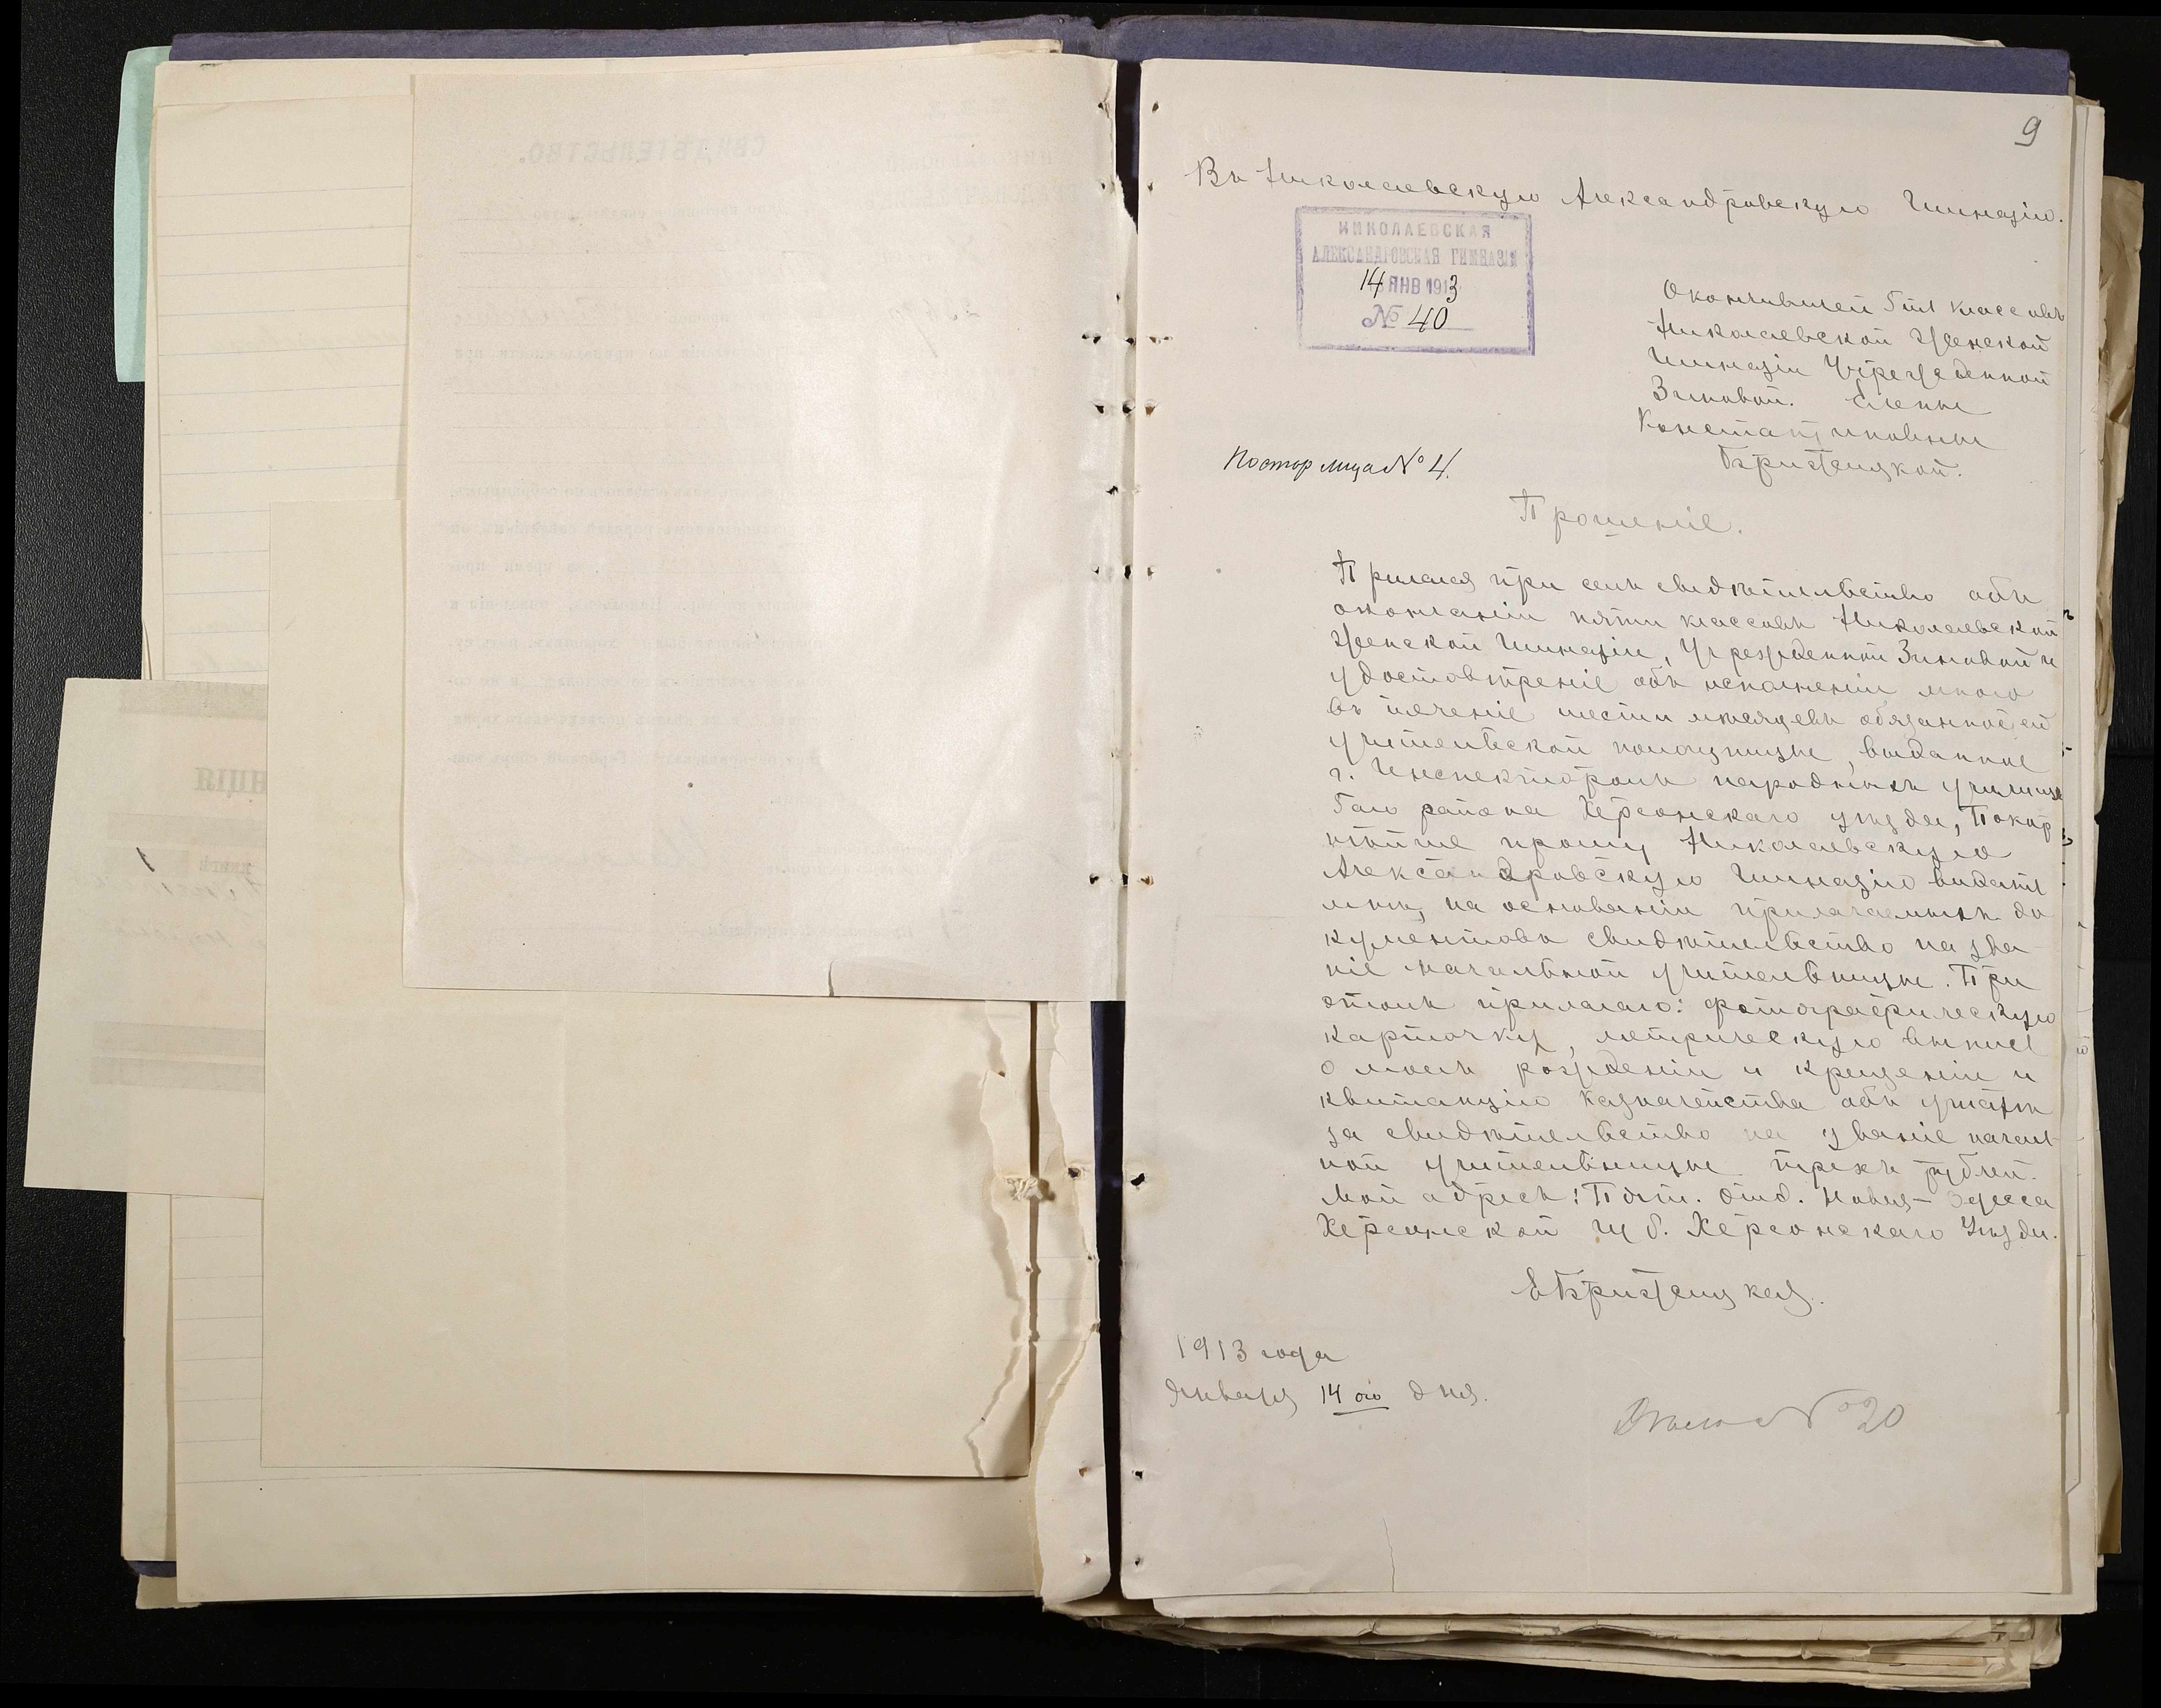 9
Въ Николаевскую Александровскую Гимназію.
НИКОЛАЕВСКАЯ
АЛЕКСАНДРОВСКАЯ ГИМНАЗІЯ
14 ЯНВ 1913
№ 40
Окончившей 5ти классовъ
Николаевской Женской
Гимназіи Учрежденной
Зиновой. Елены
Константиновны
Бржезицкой.
Постор лица № 4.
Прошеніе.
Прилагая при семъ свидѣтельство объ
окончаніи пяти классовъ Николаевской
Женской Гимназіи, Учрежденной Зиновой и
удостовѣреніе объ исполненіи мною
въ теченіе шести мѣсяцевъ обязанностей
учительской помощницы, выданное
г. Инспекторомъ народныхъ училищъ
района Херсонскаго уѣзда, Покор
нѣйше прошу Николаевскую
Александровскую Гимназію выдать
мнѣ, на основаніи прилагаемыхъ до
кументовъ свидѣтельство на зва
ніе начальной учительницы. При
этомъ прилагаю: фотографическую
карточку, метрическую выпись
о моемъ рожденіи и крещеніи и
квитанцію Казначейства объ уплатѣ
за свидѣтельство на званіе началь
ной учительницы трехъ рублей.
Мой адресъ: Почт. Отд. Новая-Одесса
Херсонской губ. Херсонскаго Уѣзда.
1913 года
Января 14 ого дня.
№ 20
СВИДѢТЕЛЬСТВО.